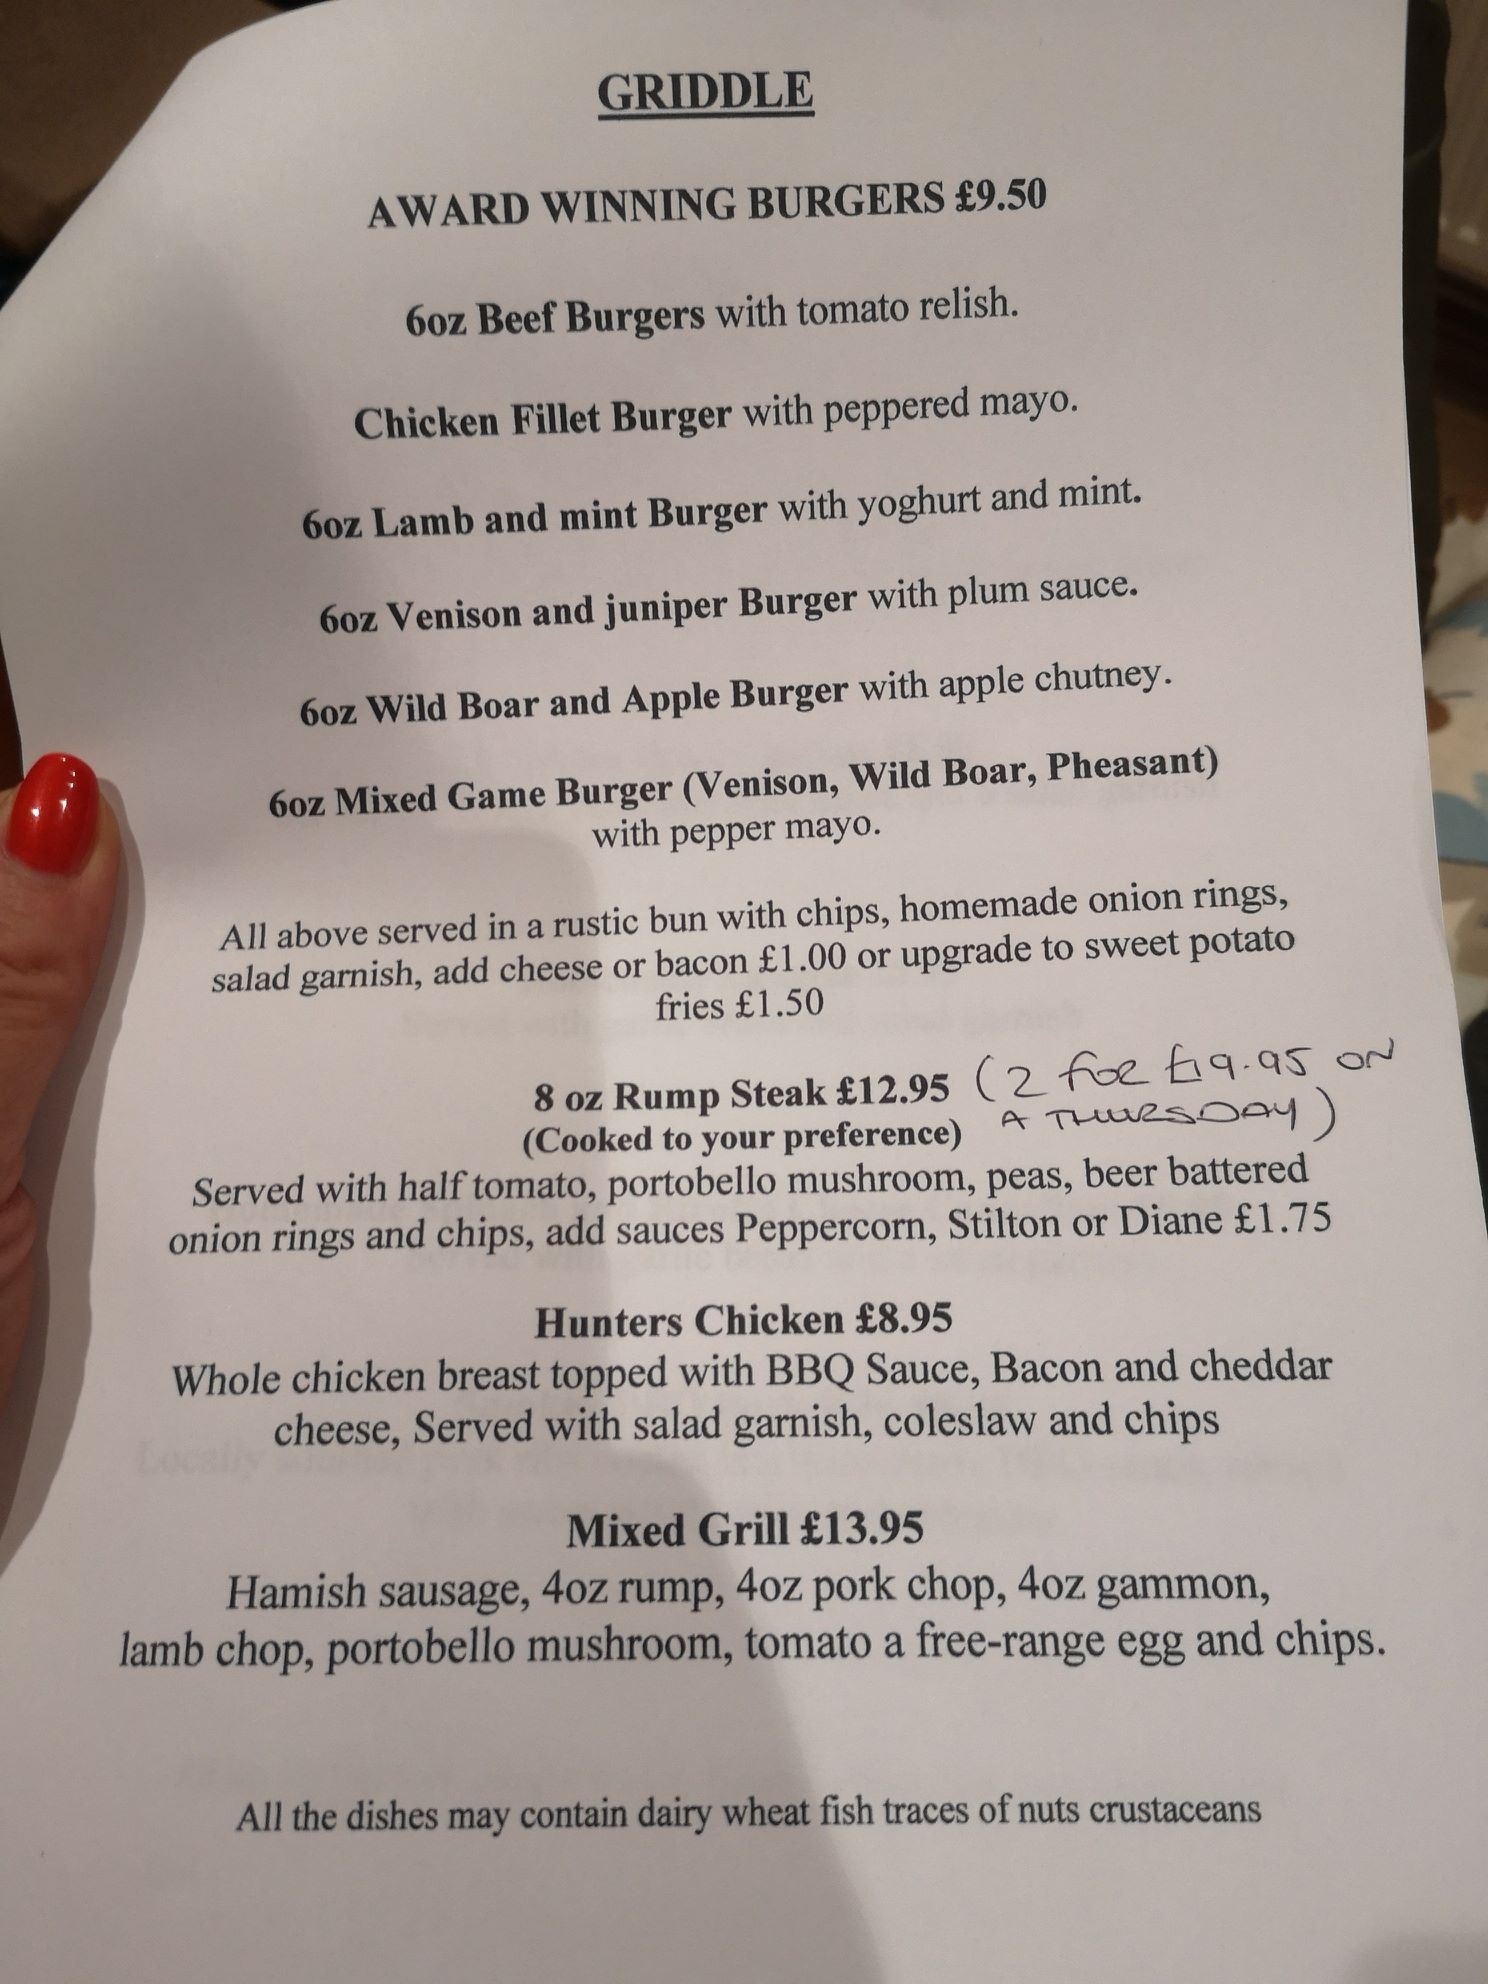 GRIDDLE
AWARD WINNING BURGERS £9.50
6oz Beef Burgers with tomato relish.
Chicken Fillet Burger with peppered mayo.
6oz Lamb and mint Burger with yoghurt and mint.
6oz Venison and juniper Burger with plum sauce.
6oz Wild Boar and Apple Burger with apple chutney.
6oz Mixed Game Burger (Venison, Wild Boar, Pheasant)
with pepper mayo.
All above served in a rustic bun with chips, homemade onion rings,
salad garnish, add cheese or bacon £1.00 or upgrade to sweet potato
fries £1.50
8 oz Rump Steak £12.95 (2 FOR £19.95 ON
(Cooked to your preference) A THURSDAY)
Served with half tomato, portobello mushroom, peas, beer battered
onion rings and chips, add sauces Peppercorn, Stilton or Diane £1.75
Hunters Chicken £8.95
Whole chicken breast topped with BBQ Sauce, Bacon and cheddar
cheese, Served with salad garnish, coleslaw and chips
Mixed Grill £13.95
Hamish sausage, 4oz rump, 4oz pork chop, 4oz gammon,
lamb chop, portobello mushroom, tomato a free-range egg and chips.
All the dishes may contain dairy wheat fish traces of nuts crustaceans